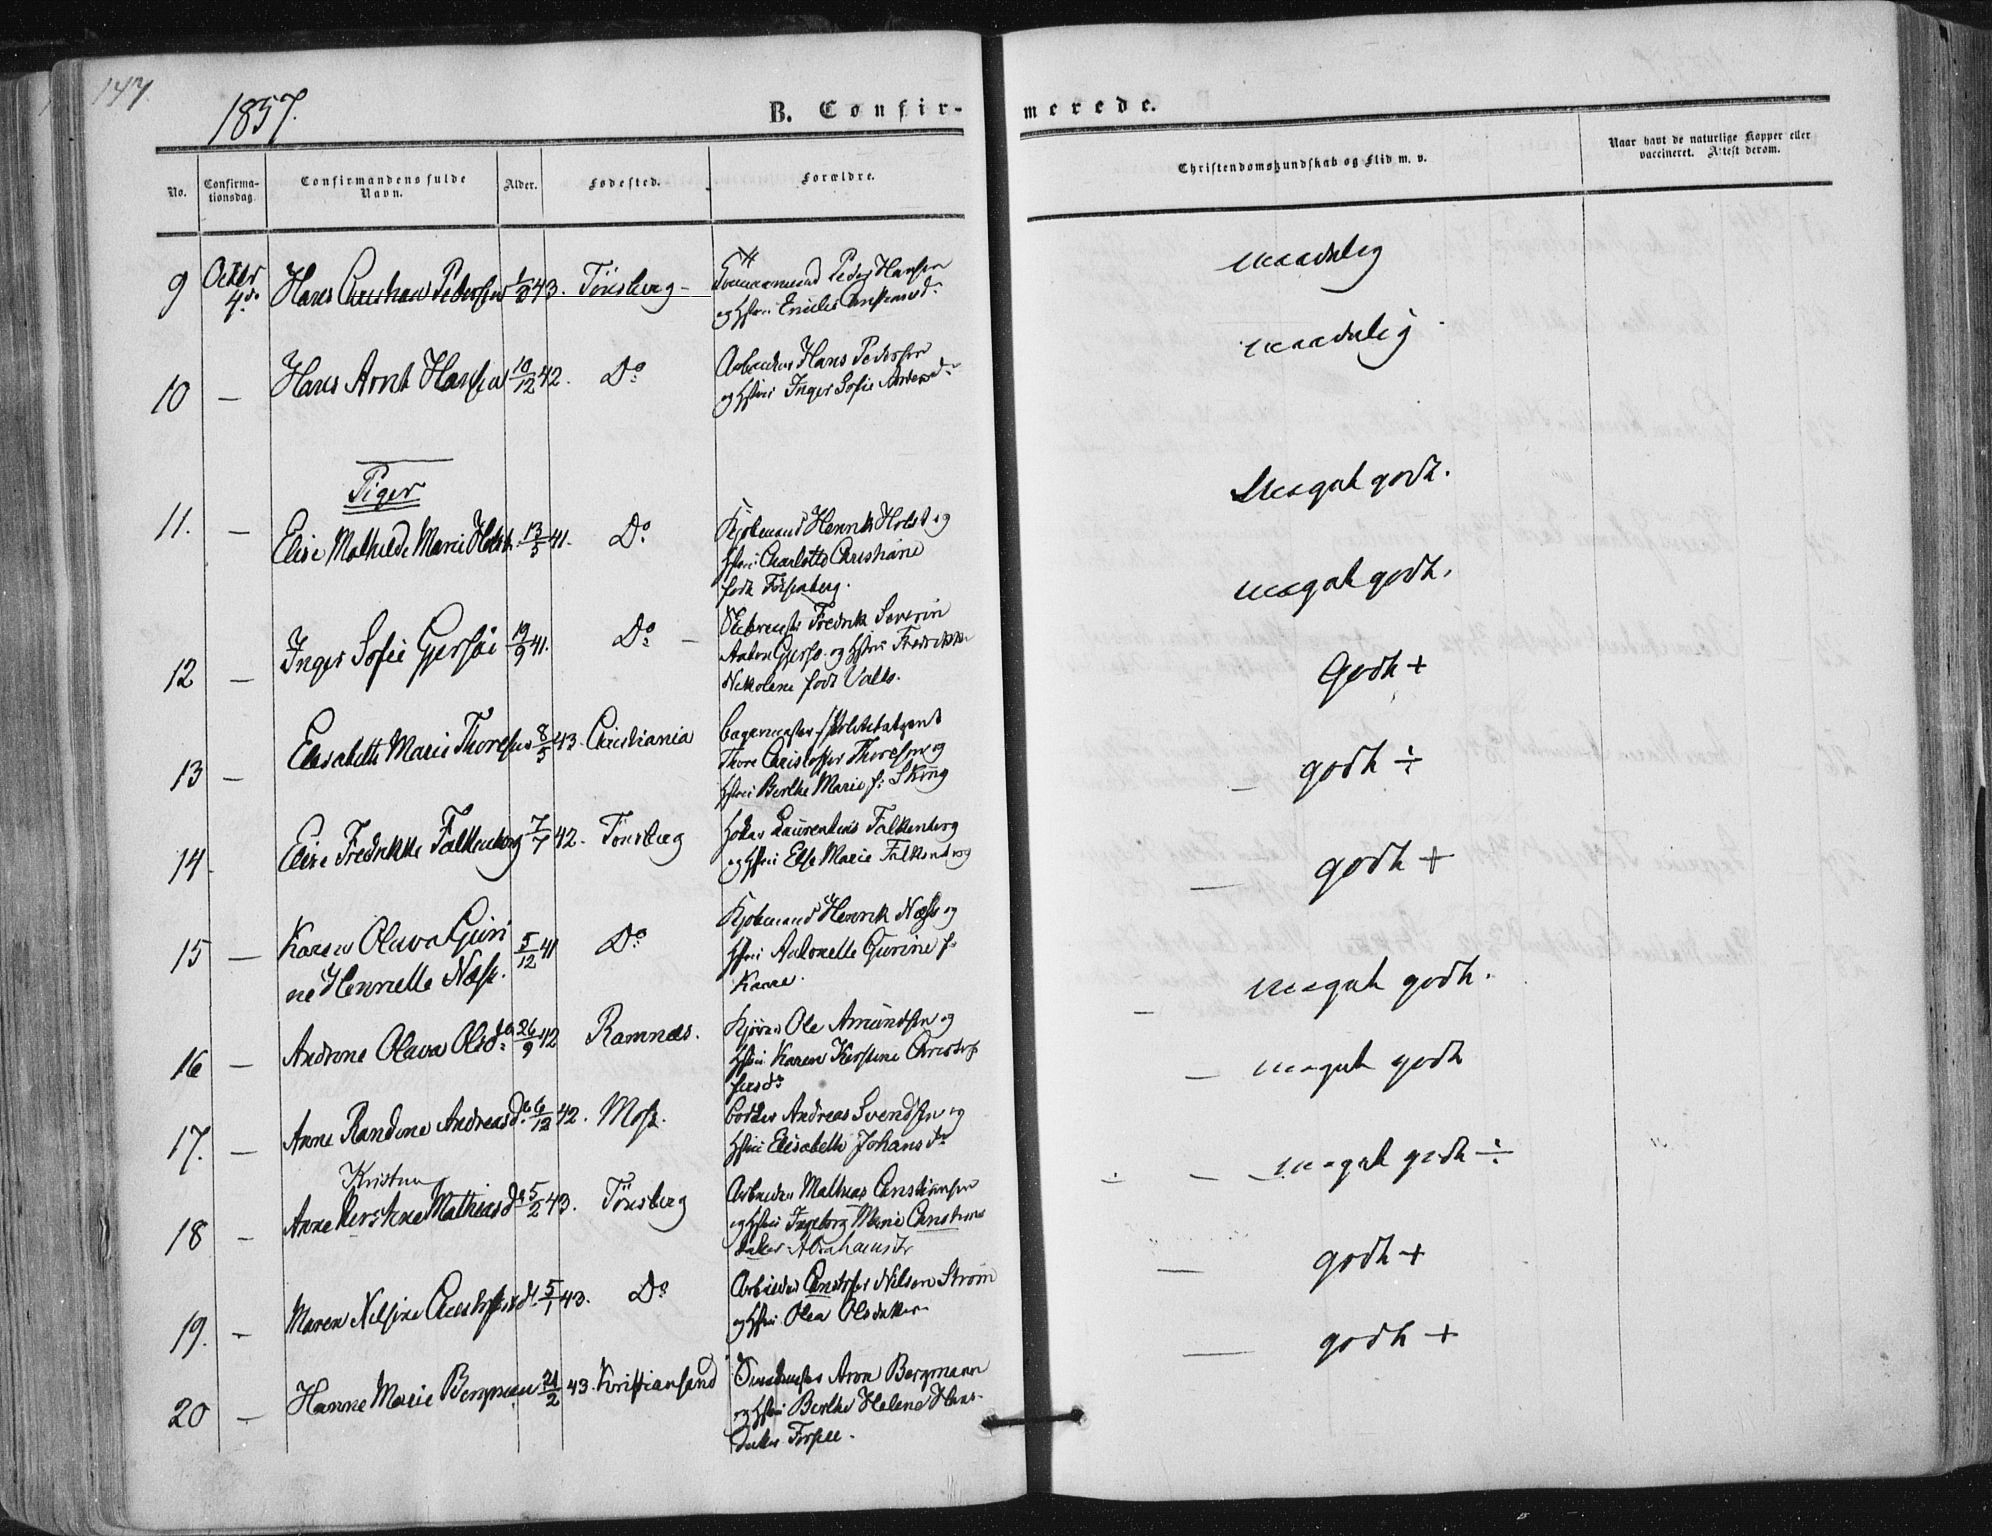 147.
1857.
B. Confir-
merede.
No.
Confirma-
tionsdag
Confirmandens fulde
Navn.
Alder.
Fødested.
Forældre.
Christendomskundskab og Flid m. v.
Naar havt de naturlige Kopper eller
vaccineret. Attest derom.
9 Octbr 4de Hans Christian Pedersen 43. Tönsberg - Tömmermand Peder Hansen
og Hstru Emilie
maadelig
10 — Hans Arnt Hansen 10/12 42. Do Arbeider Hans Pedersen
og Hstru Inger Sofie Andersd.
maadelig
Piger
11. — Elise Mathilde Marie Holst. 13/5 41. Do Kjøbmand Henrik Holst og
Hstru Charlotte Christiane
født
Meget godt.
12 — Inger Sofie Gjersøe 19/9 41. Do — Fredrik Severin
Gjersø. og Hstru Fredrikke
Nikoline født
meget godt.
13 — Elisabeth Marie Thoresen 8/5 43. Christiania Bagermester
Thore Christoffer Thoresen og
Hstru Berthe Marie f.
Godt +
14 Elise Fredrikke Falkenberg 7/7 42. Tönsberg Laurentius Falkenberg
og Hstru Else Marie Falkenberg
godt ÷
15 — Karen Olava Guri
ne Henriette Næss. 5/12 41 Do Kjøbmand Henrik Næss og
Hstru Antonette Gurine f.
godt +
16 — Andrine Olava Olsd. 26/9 42 Ramnæs. Ole Amundsen og
Hstru Karen Kirstine Christof
fersdr
meget godt.
17. — Anne Randine Andreasd. 6/12 42. Moss. Bødker Andreas Svendsen og
Hstru Elisabeth Johansdr
meget godt
Kristine
18 — Anne Kirstine Mathiasdr 5/2 43. Tönsberg Arbeider Mathias Christiansen
og Hstru Ingeborg Marie Christians
datter Abrahamsdr
meget godt ÷
19. — Maren Nilsine Christoffersd. 5/1 43. Do Arbeider Christoffer Nilsen Strøm
og Hstru Olea Olsdatter
godt +
20 — Hanne Marie Bergman 21/2 43. Kristiansand Aron Bergmann
og Hstru Berthe Helene Hans-
datter
godt +